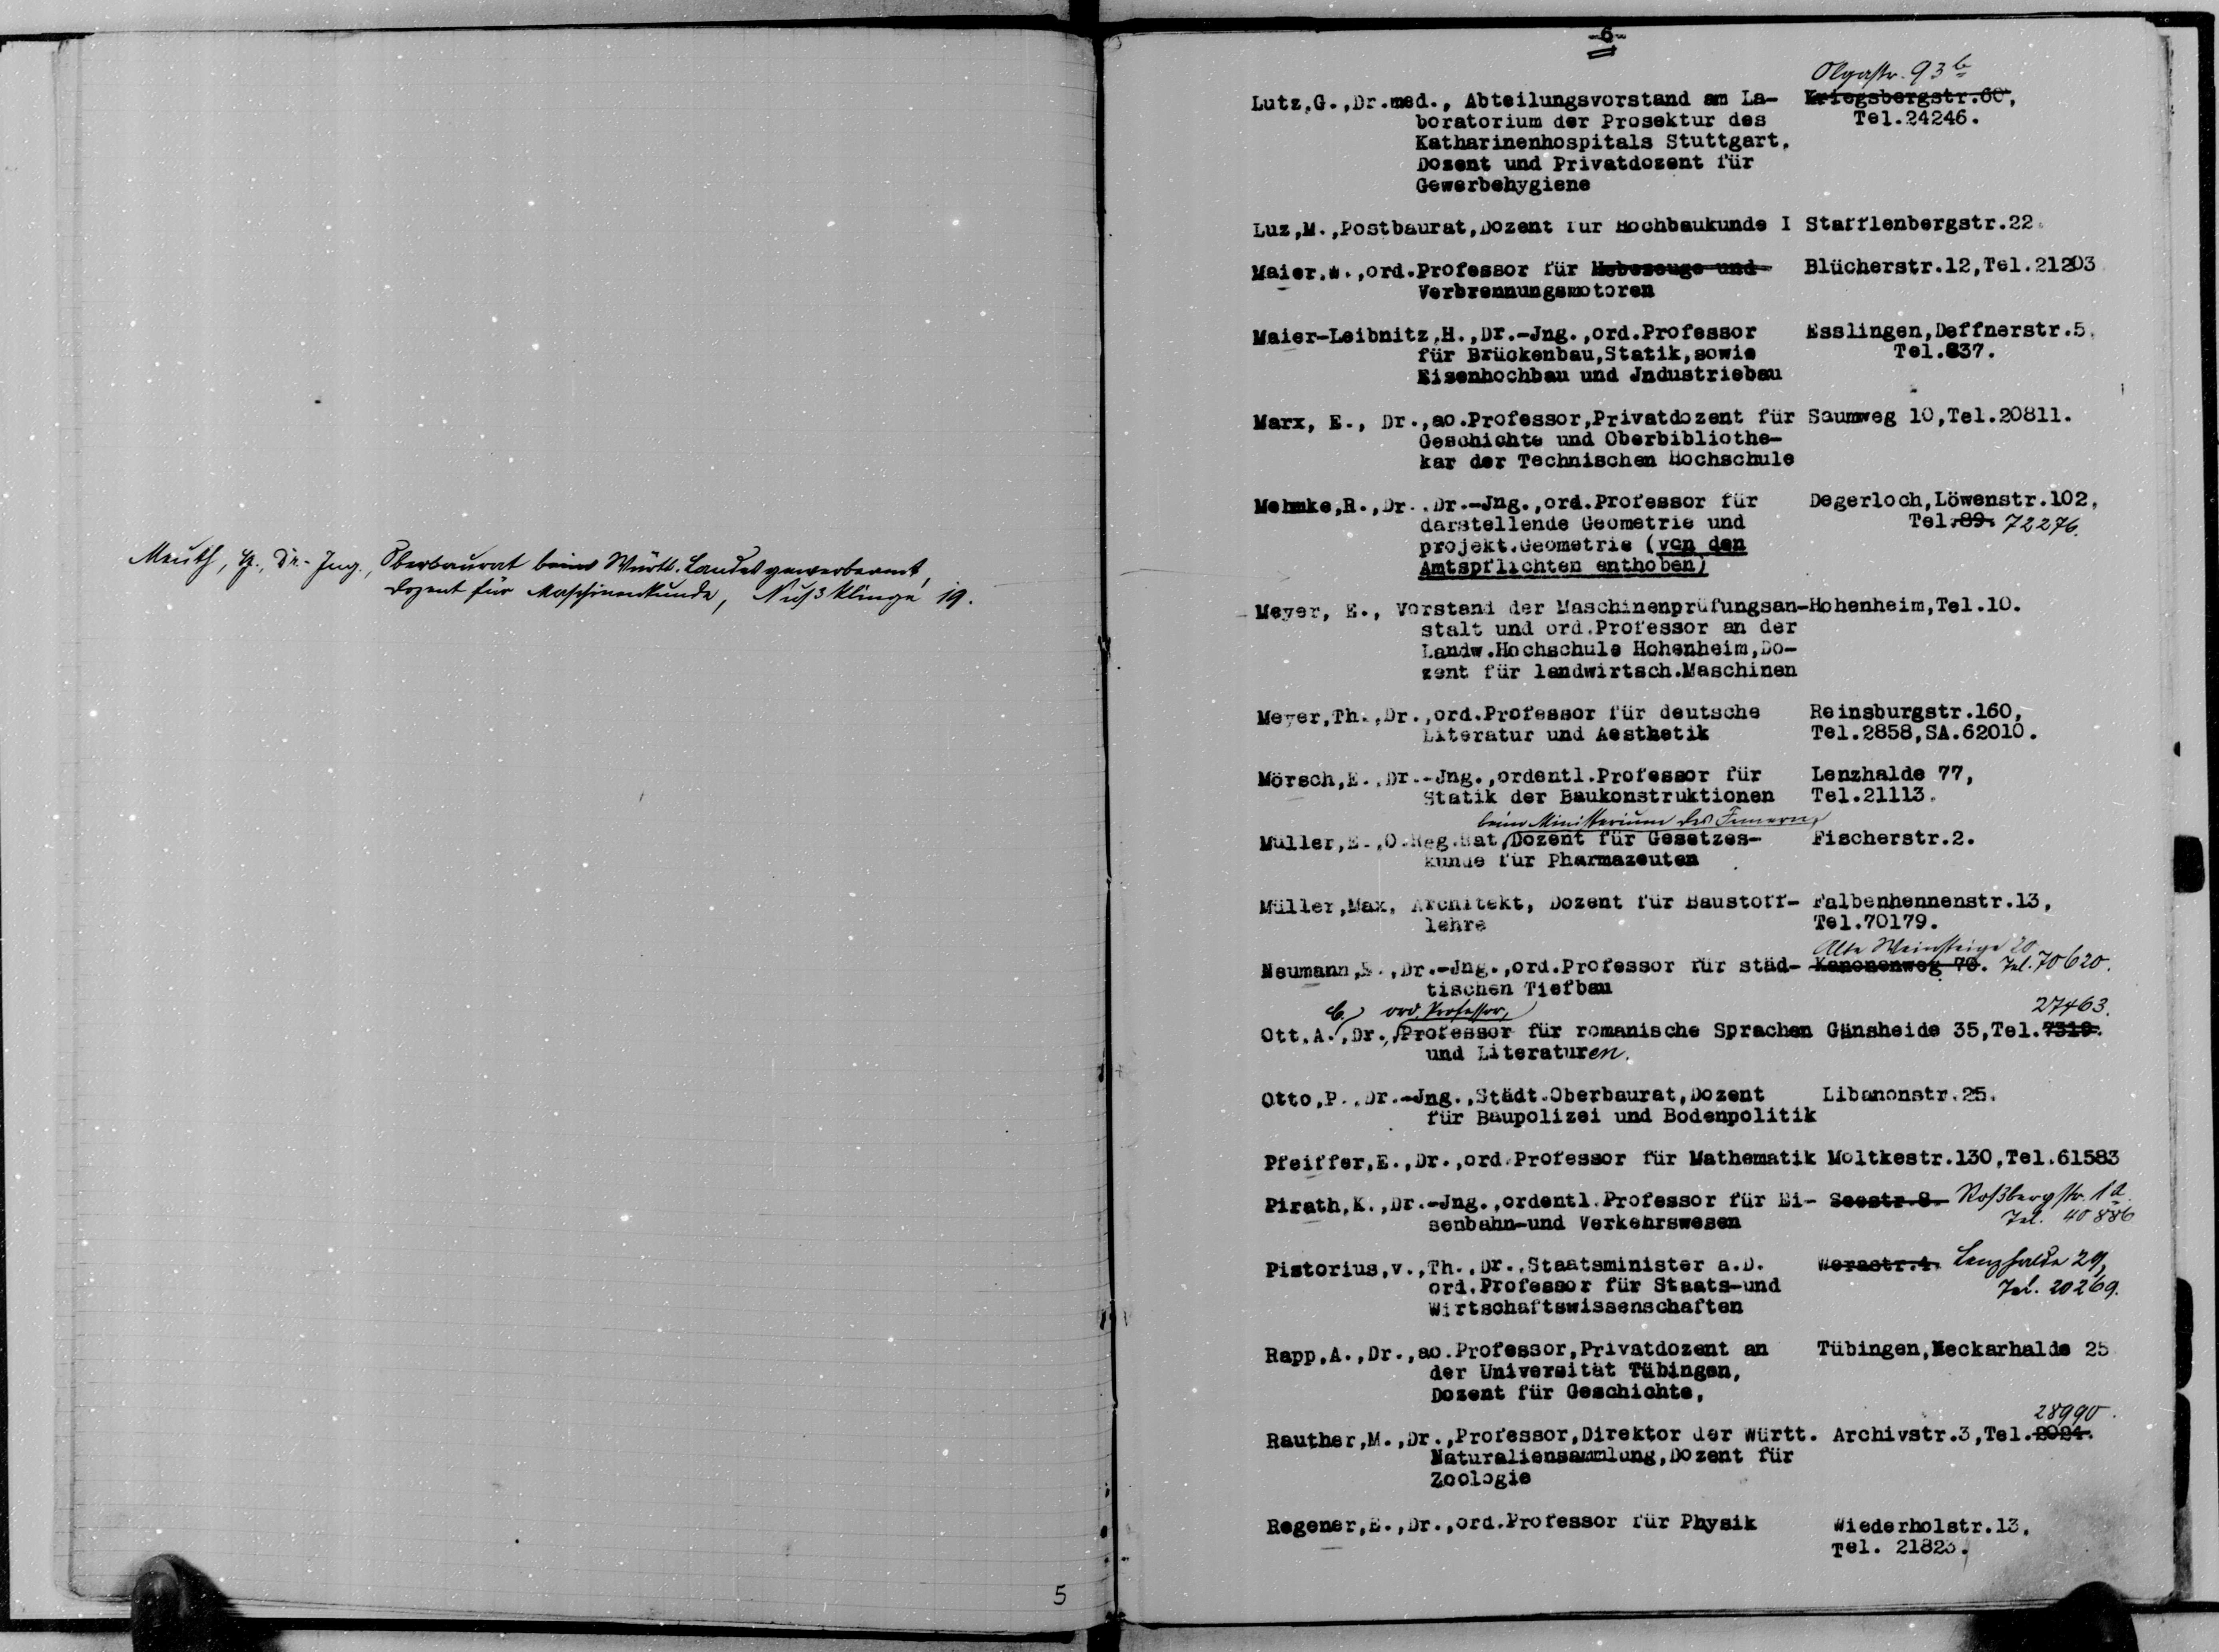 Meuth, H., Dr.-Ing., Oberbaurat beim Württ. Landesgewerbeamt,
Dozent für Maschinenkunde, Nußklinge 19.
5
-6-
Olgastr. 93 b
Lutz,G.,Dr.med., Abteilungsvorstand am La- Kriegsbergstr.60,
boratorium der Prosektur des Tel.24246.
Katharinenhospitals Stuttgart,
Dozent und Privatdozent für
Gewerbehygiene
Luz,M.,Postbaurat,Dozent für Hochbaukunde I Stafflenbergstr.22.
Maier,W.,ord.Professor für Hebezeuge und Blücherstr.12,Tel.21203
Verbrennungsmotoren
Maier-Leibnitz,H.,Dr.-Jng.,ord.Professor Esslingen,Deffnerstr.5,
für Brückenbau,Statik,sowie Tel.837.
Eisenhochbau und Jndustriebau
Marx, E., Dr.,ao.Professor,Privatdozent für Saumweg 10,Tel.20811.
Geschichte und Oberbibliothe-
kar der Technischen Hochschule
Mehmke,R.,Dr.,Dr.-Jng.,ord.Professor für Degerloch,Löwenstr.102,
darstellende Geometrie und Tel.89. 72276.
projekt.Geometrie (von den
Amtspflichten enthoben)
Meyer, E., Vorstand der Maschinenprüfungsan-Hohenheim,Tel.10.
stalt und ord.Professor an der
Landw.Hochschule Hohenheim,Do-
zent für landwirtsch.Maschinen
Meyer,Th.,Dr.,ord.Professor für deutsche Reinsburgstr.160,
Literatur und Aesthetik Tel.2858,SA.62010.
Mörsch,E.,Dr.-Jng.,ordentl.Professor für Lenzhalde 77,
Statik der Baukonstruktionen Tel.21113.
beim Ministerium des Innern,
Müller,E.,O.Reg.Rat,Dozent für Gesetzes- Fischerstr.2.
kunde für Pharmazeuten
Müller,Max, Architekt, Dozent für Baustoff- Falbenhennenstr.13,
lehre Tel.70179.
Alte Weinsteige 20
Neumann,E.,Dr.-Jng.,ord.Professor für städ- Kanonenweg 70. Tel. 70620.
tischen Tiefbau
C. ord. Professor, 27463.
Ott,A.,Dr.,Professor für romanische Sprachen Gänsheide 35,Tel.7310.
und Literaturen.
Otto,P.,Dr.-Jng.,Städt.Oberbaurat,Dozent Libanonstr.25.
für Baupolizei und Bodenpolitik
Pfeiffer,E.,Dr.,ord.Professor für Mathematik Moltkestr.130,Tel.61583
Pirath,K.,Dr.-Jng.,ordentl.Professor für Ei- Seestr.8. Roßbergstr. 1a.
senbahn-und Verkehrswesen Tel. 40886
Pistorius,v.,Th.,Dr.,Staatsminister a.D. Werastr.4. Lenzhalde 29,
ord.Professor für Staats-und Tel. 20269.
Wirtschaftswissenschaften
Rapp,A.,Dr.,ao.Professor,Privatdozent an Tübingen,Neckarhalde 25
der Universität Tübingen,
Dozent für Geschichte,
28990.
Rauther,M.,Dr.,Professor,Direktor der Württ. Archivstr.3,Tel.2024.
Naturaliensammlung,Dozent für
Zoologie
Regener,E.,Dr.,ord.Professor für Physik Wiederholstr.13,
Tel. 21823.